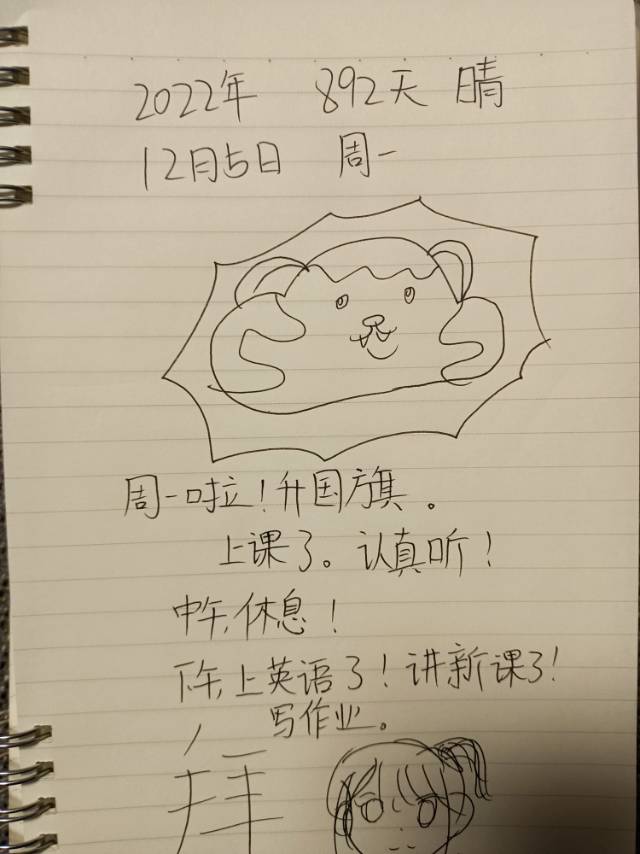 2022年 892天 晴
12月5日 周一
周一啦!升国旗。
上课了。认真听!
中午,休息!
下午,上英语了!讲新课了!
写作业。
拜